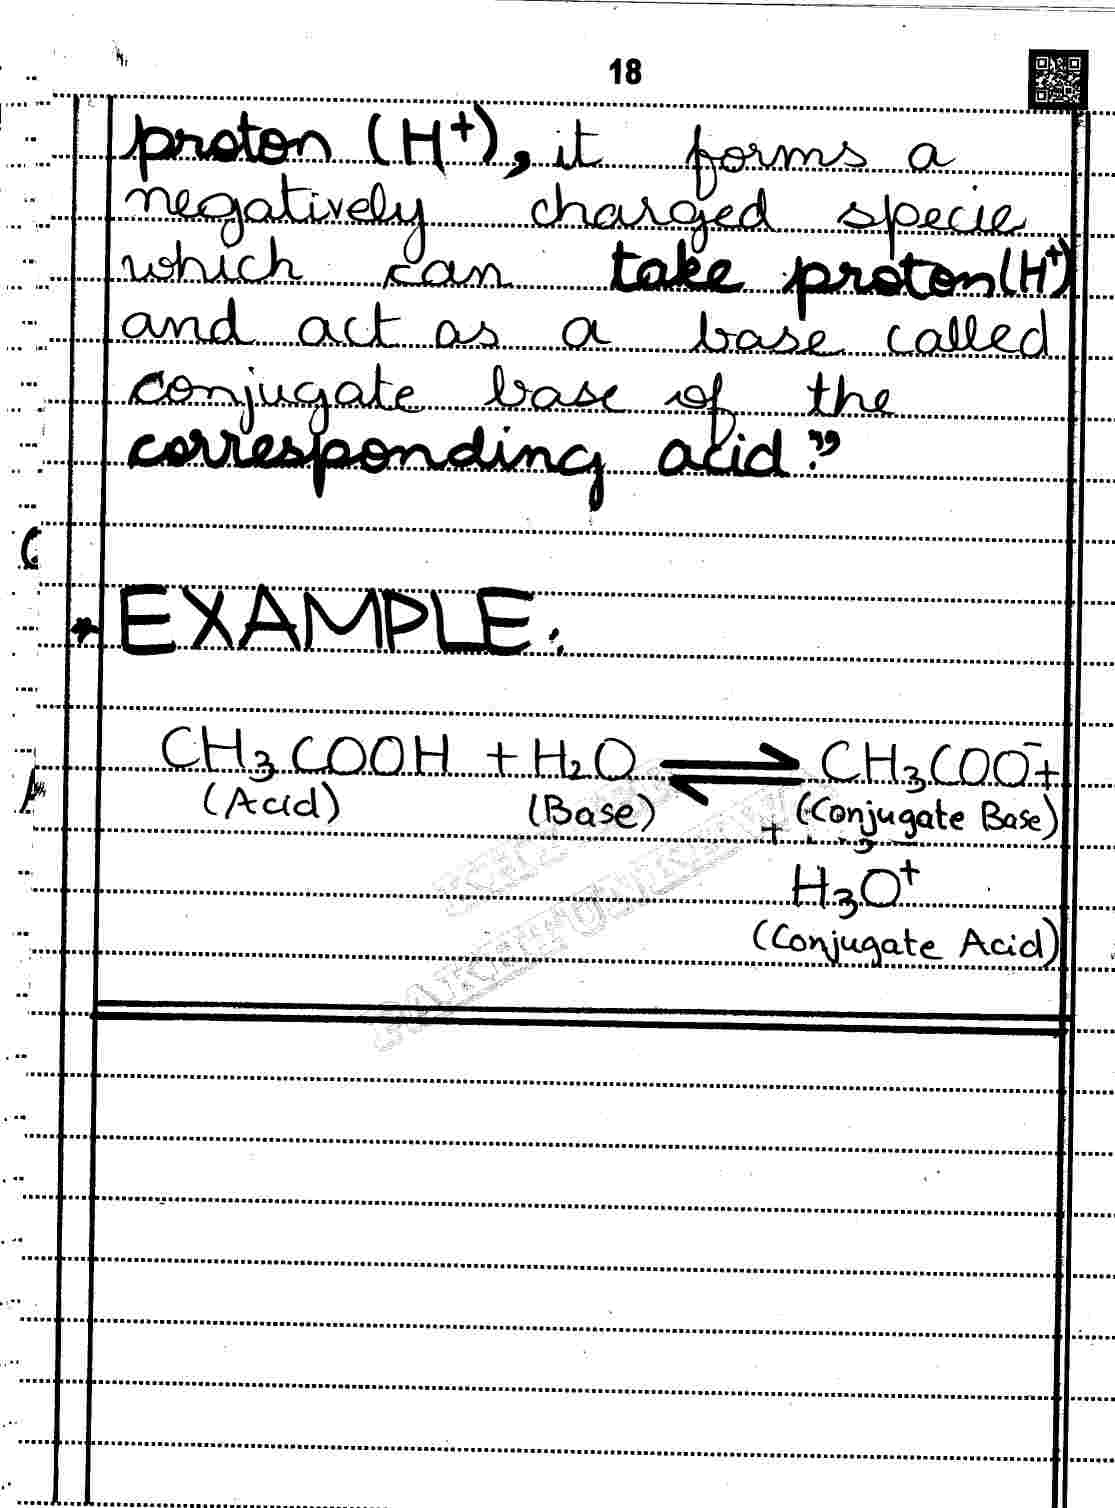 18
proton (H⁺), it forms a
negatively charged specie
which can take proton (H⁺)
and act as a base called
conjugate base of the
corresponding acid."
* EXAMPLE:
CH₃COOH + H₂O ⇌ CH₃COO⁻ +
(Acid) (Base) (Conjugate Base)
+
H₃O⁺
(Conjugate Acid)